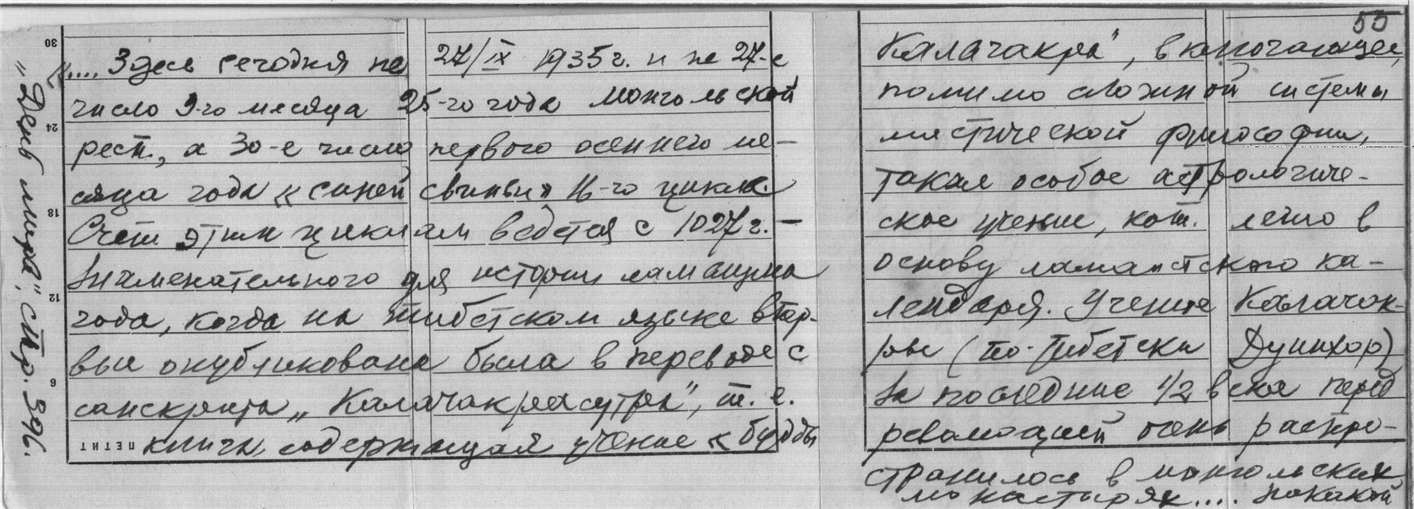 „День мира", стр. 396.
«.... Здесь сегодня не 27/IX 1935г. и не 27-е
число 9-го месяца 25-го года монгольской
респ., а 30-е число первого осеннего ме-
сяца года «синей свиньи» 16-го цикла.
Счет этим циклам ведется с 1027г. –
знаменательного для истории ламаизма
года, когда на тибетском языке впер-
вые опубликована была в переводе с
санскрита „Калачакрасутра", т. е.
книга, содержащая учение «будды
55
Калачакры", включающее,
помимо сложной системы
мистической философии,
также особое астрологиче-
ское учение, кот. легло в
основу ламаистского ка-
лендаря. Учение Калачак-
ры (по-тибетски Дуйнхор)
за последние 1/2 века перед
революцией очень распро-
странилось в монгольских
монастырях.... покакой
30
24
18
12
6